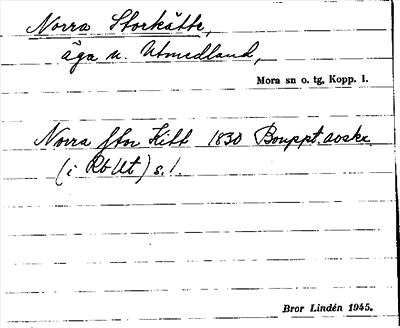 Norra Storkätte,
äga n. Utmedland,
Mora sn o. tg, Kopp. l.
Norra stor Kitt 1830 Bouppt.avskr.
(i Rb Ut) s. 1.
Bror Lindén 1945.